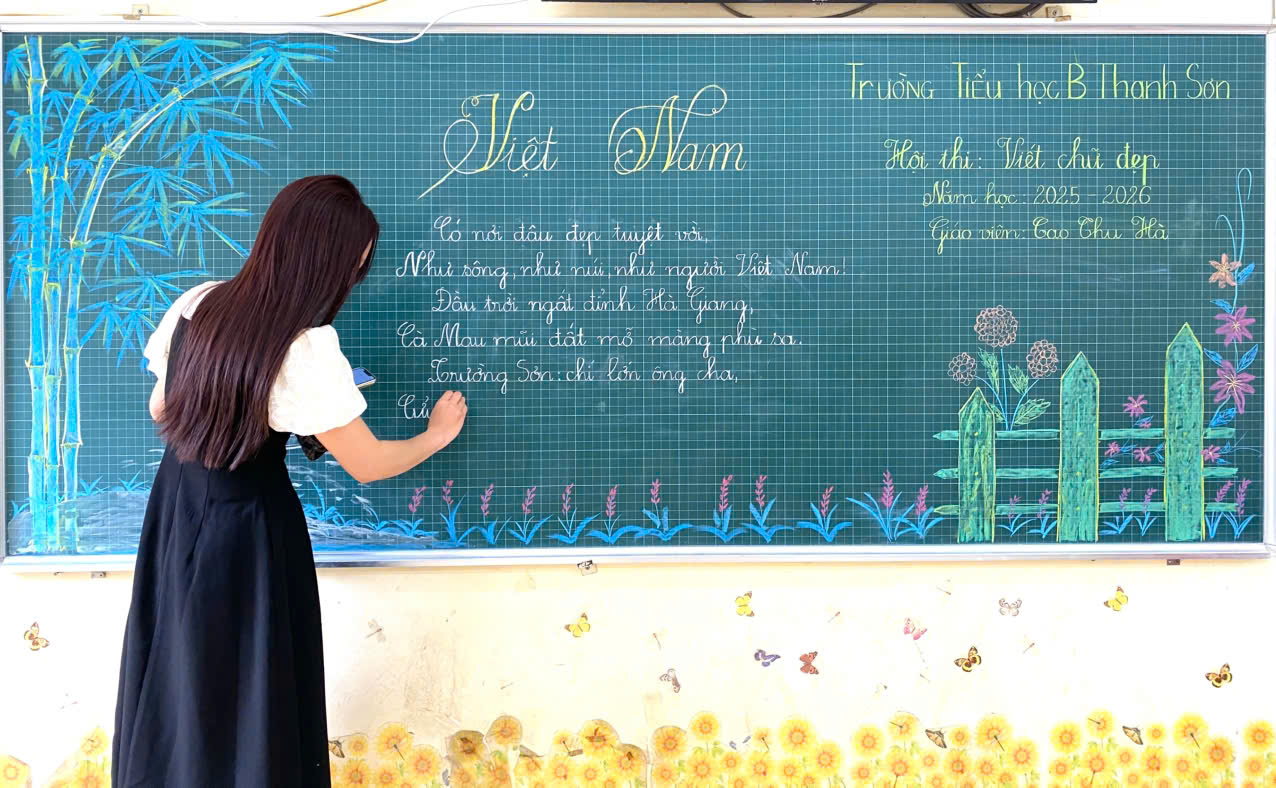 Việt Nam
Có nơi đâu đẹp tuyệt vời,
Như sông, như núi, như người Việt Nam!
Đầu trời ngất đỉnh Hà Giang,
Cà Mau mũi đất mỡ màng phù sa.
Trường Sơn: chí lớn ông cha,
Cửu
Trường Tiểu học B Thanh Sơn
Hội thi: Viết chữ đẹp
Năm học: 2025 - 2026
Giáo viên: Cao Thu Hà